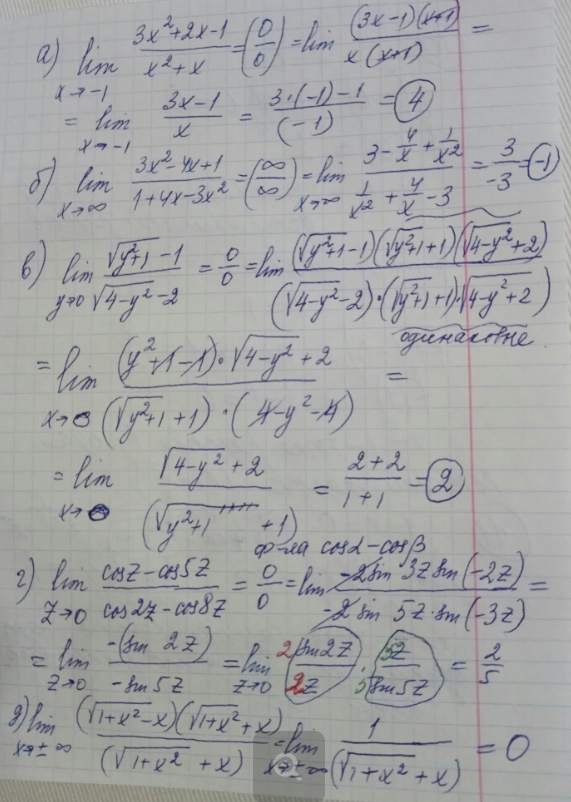 а) lim x→-1 (3x²+2x-1)/(x²+x) = (0/0) = lim ((3x-1)(x+1))/(x(x+1)) =
= lim x→-1 (3x-1)/x = (3·(-1)-1)/(-1) = 4
б) lim x→∞ (3x²-4x+1)/(1+4x-3x²) = (∞/∞) = lim x→∞ (3-4/x+1/x²)/(1/x²+4/x-3) = 3/-3 = -1
в) lim y→0 (√(y²+1)-1)/(√(4-y²)-2) = 0/0 = lim ((√(y²+1)-1)(√(y²+1)+1)(√(4-y²)+2))/((√(4-y²)-2)·(√(y²+1)+1)·√(4-y²+2))
одинаковые
= lim x→0 ((y²+1-1)·√(4-y²)+2)/((√(y²+1)+1)·(4-y²-4)) =
= lim x→0 (√(4-y²)+2)/(√(y²+1)+1) = (2+2)/(1+1) = 2
ф-ла cosα-cosβ
г) lim z→0 (cosz-cos5z)/(cos2z-cos8z) = 0/0 = lim (-2sin3z sin(-2z))/(-2sin5z·sin(-3z)) =
= lim z→0 (-(sin2z))/(-sin5z) = lim z→0 2sin2z/2z · 5z/5sin5z = 2/5
д) lim x→±∞ ((√(1+x²)-x)(√(1+x²)+x))/(√(1+x²)+x) = lim x→±∞ 1/(√(1+x²)+x) = 0